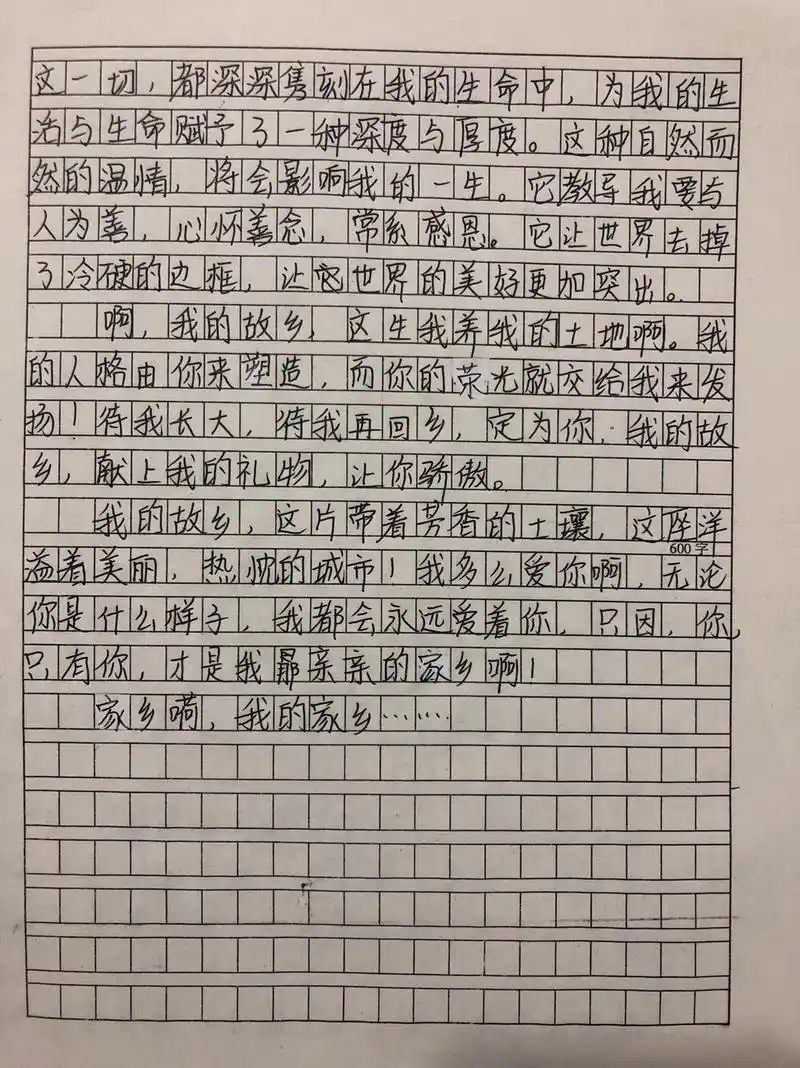 这一切，都深深隽刻在我的生命中，为我的生
活与生命赋予了一种深度与厚度。这种自然而
然的温情，将会影响我的一生。它教导我要与
人为善，心怀善念，常系感恩。它让世界去掉
了冷硬的边框，让世界的美好更加突出。
啊，我的故乡，这生我养我的土地啊。我
的人格由你来塑造，而你的荣光就交给我来发
扬！待我长大，待我再回乡，定为你，我的故
乡，献上我的礼物，让你骄傲。
我的故乡，这片带着芳香的土壤，这座洋
600字
溢着美丽，热忱的城市！我多么爱你啊，无论
你是什么样子，我都会永远爱着你，只因，你，
只有你，才是我最亲亲的家乡啊！
家乡嗬，我的家乡……